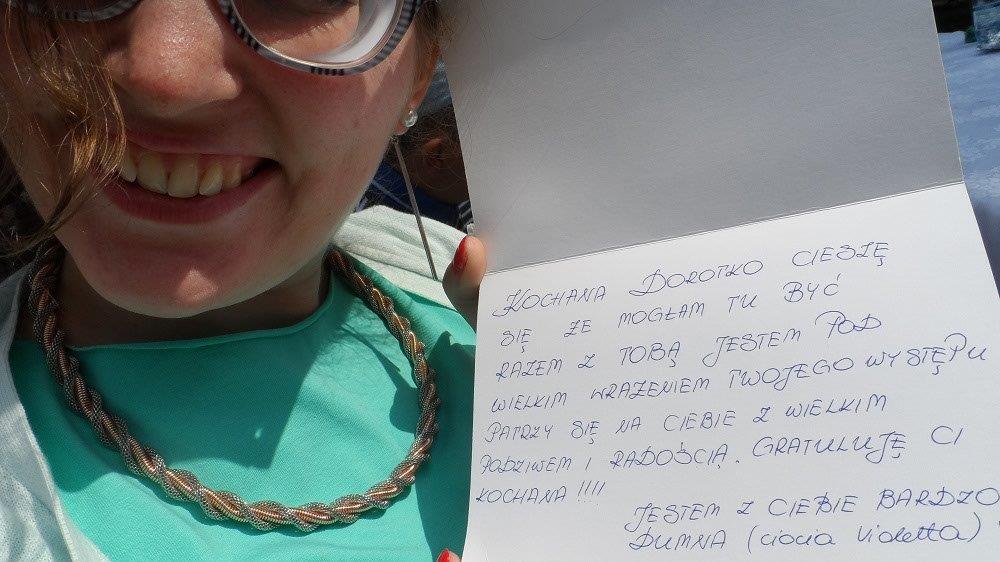 KOCHANA DOROTKO CIESZĘ
SIĘ ZE MOGŁAM TU BYĆ
RAZEM Z TOBĄ JESTEM POD
WIELKIM WRAZENIEM TWOJEGO WYSTĘPU
PATRZY SIĘ NA CIEBIE Z WIELKIM
PODZIWEM I RADOŚCIĄ. GRATULUJĘ CI
KOCHANA !!!!
JESTEM Z CIEBIE BARDZO
DUMNA (ciocia Violetta)